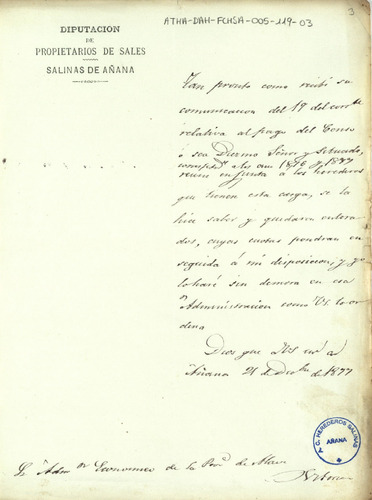 3
ATHA-DAH-FCHSA-005-119-03
DIPUTACION
DE
PROPIETARIOS DE SALES
SALINAS DE AÑANA
Tan pronto como recibí su
comunicacion del 19 del corrte
relativa al pago del Censo
ó sea Diezmo Señor y Situado,
correspte á los años 1876 y 1877
reuní en junta á los herederos
que tienen esta carga, se la
hice saber y quedaron entera-
dos, cuyas cuotas pondran en
seguida á mi disposicion, y yo
lo haré sin demora en esa
Administracion como VS. lo or-
dena
Dios gue á VS ms as
Añana 21 de Dbre de 1877
Sr Admor Economico de la Prova de Alava
A. C. HEREDEROS SALINAS
AÑANA